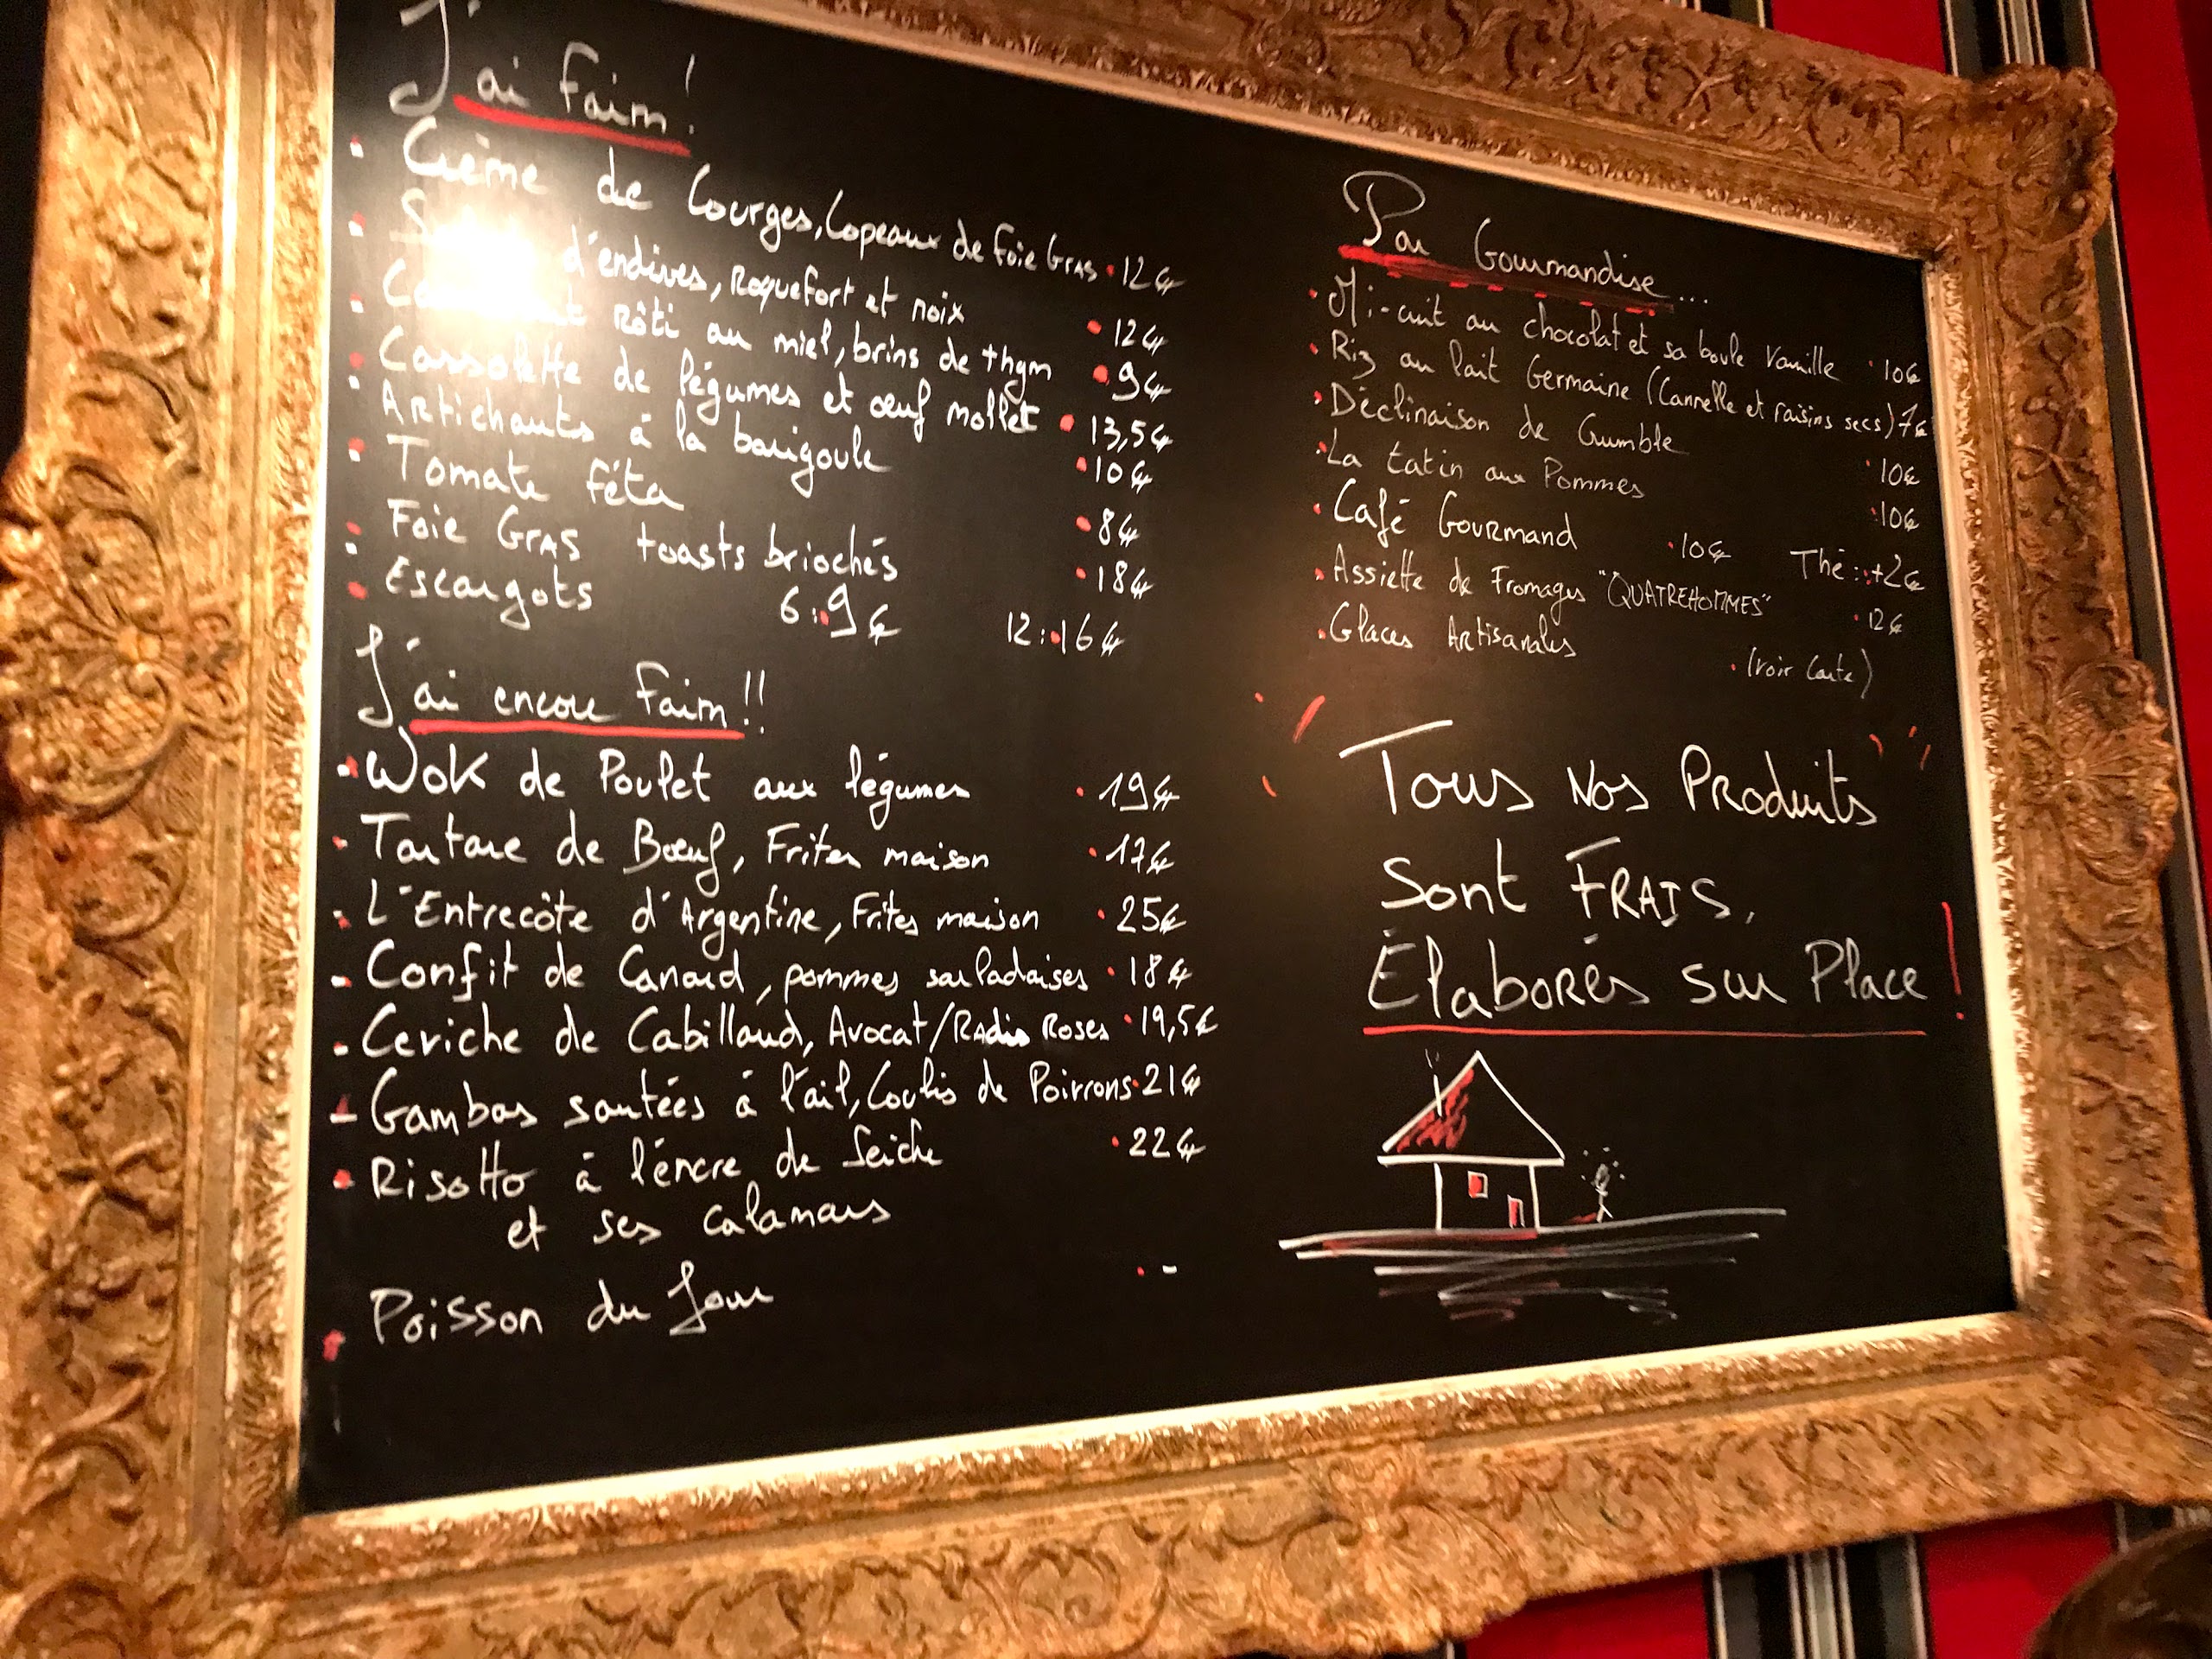 J'ai faim!
Crème de Courges, Copeaux de foie Gras 12€
d'endives, Roquefort et noix 12€
rôti au miel, brins de thym 9€
Cassolette de légumes et œuf mollet 13,5€
Artichauts à la barigoule 10€
Tomate féta 8€
Foie Gras toasts briochés 18€
Escargots 6:9€ 12:16€
J'ai encore faim!!
Wok de Poulet aux légumes 19€
Tartare de Bœuf, Frites maison 17€
L'Entrecôte d'Argentine, Frites maison 25€
Confit de Canard, pommes sarladaises 18€
Ceviche de Cabillaud, Avocat/Radis Roses 19,5€
Gambas sautées à l'ail, Coulis de Poivrons 21€
Risotto à l'encre de Seiche 22€
et ses calamars
Poisson du Jour -
Par Gourmandise...
Mi-cuit au chocolat et sa boule Vanille 10€
Riz au lait Germaine (Cannelle et raisins secs) 7€
Déclinaison de Crumble 10€
La tatin aux Pommes 10€
Café Gourmand 10€ Thé: +2€
Assiette de Fromages "QUATREHOMMES" 12€
Glaces Artisanales (voir Carte)
Tous Nos Produits
Sont FRAIS,
Élaborés sur Place!